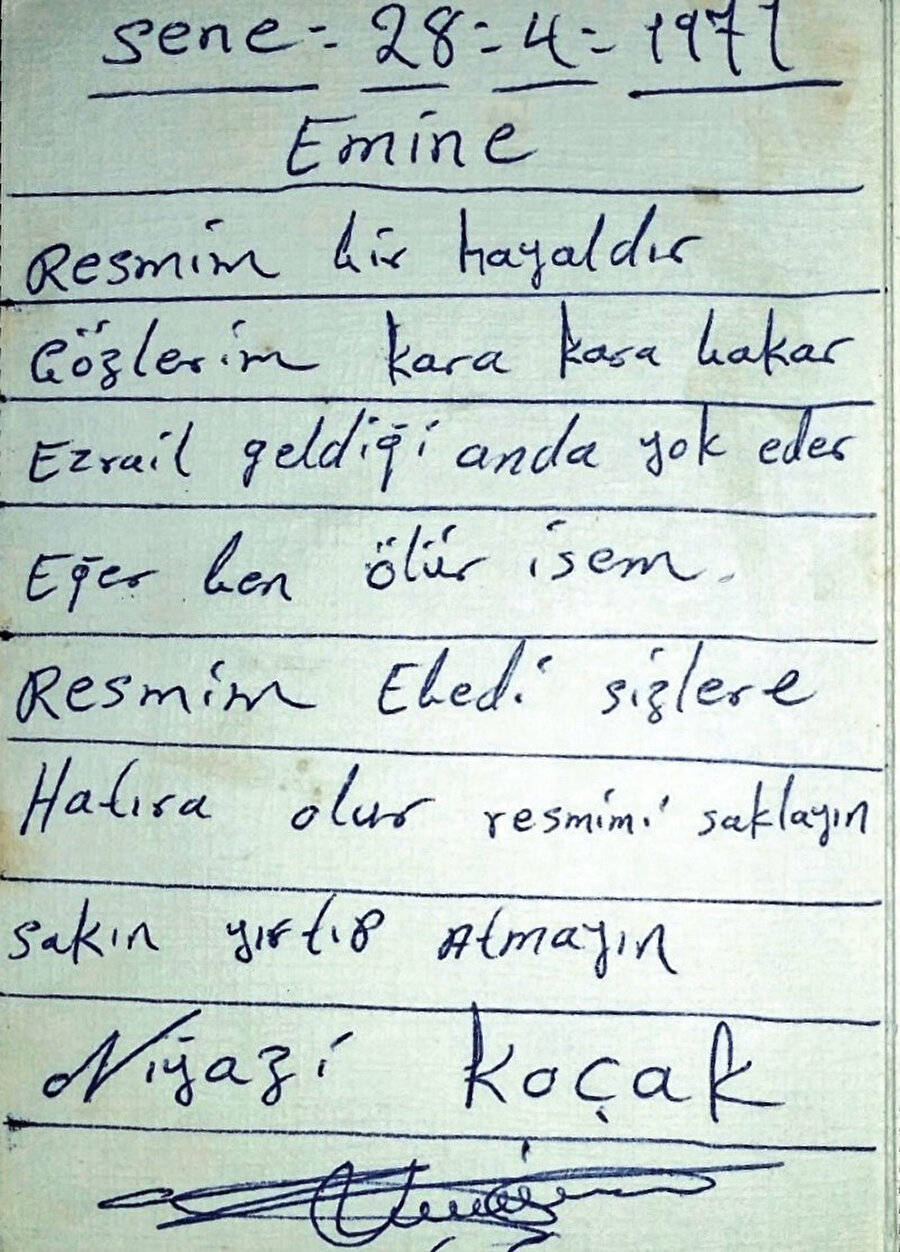 Sene = 28 = 4 = 1971
Emine
Resmim bir hayaldır
Gözlerim kara kara bakar
Ezrail geldiği anda yok eder
Eğer ben ölür isem.
Resmim Ebedi sizlere
Hatıra olur resmimi saklayın
sakın yırtıp Atmayın
Niyazi Koçak